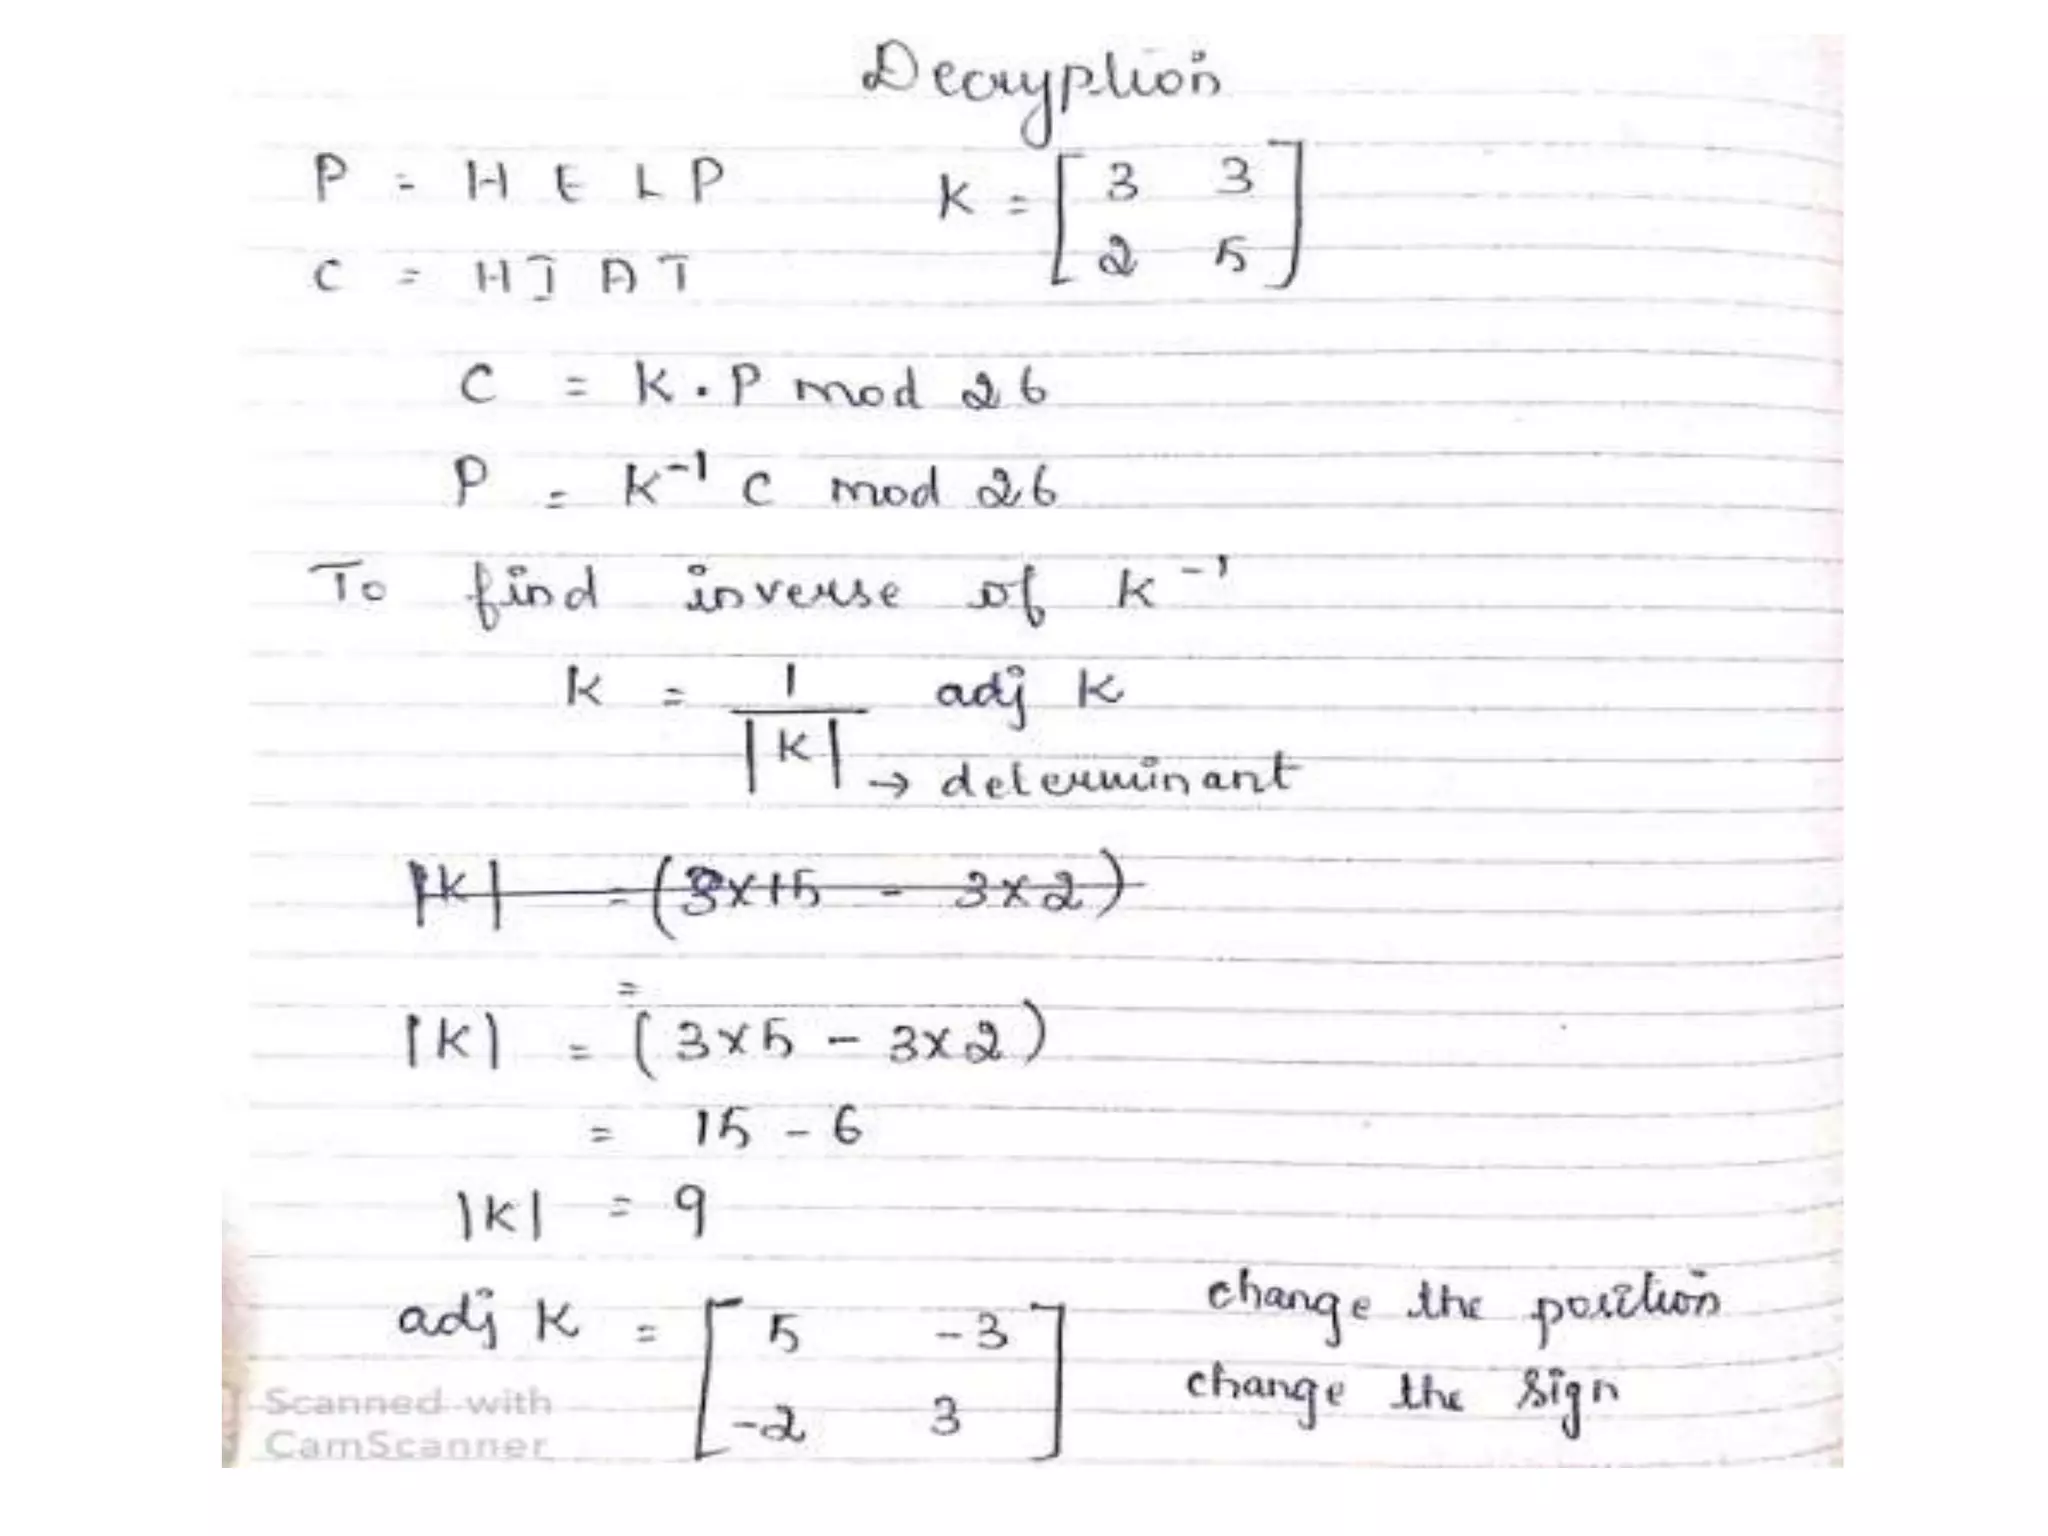 Decryption
P = H E L P
K = [ 3 3
2 5 ]
C = H I A T
C = K . P mod 26
P = K⁻¹ C mod 26
To find inverse of K⁻¹
K = 1 / |K| adj K
→ determinant
|K| = (3x15 - 3x2)
=
|K| = (3x5 - 3x2)
= 15 - 6
|K| = 9
adj K = [ 5 -3
-2 3 ]
change the position
change the sign
Scanned with
CamScanner